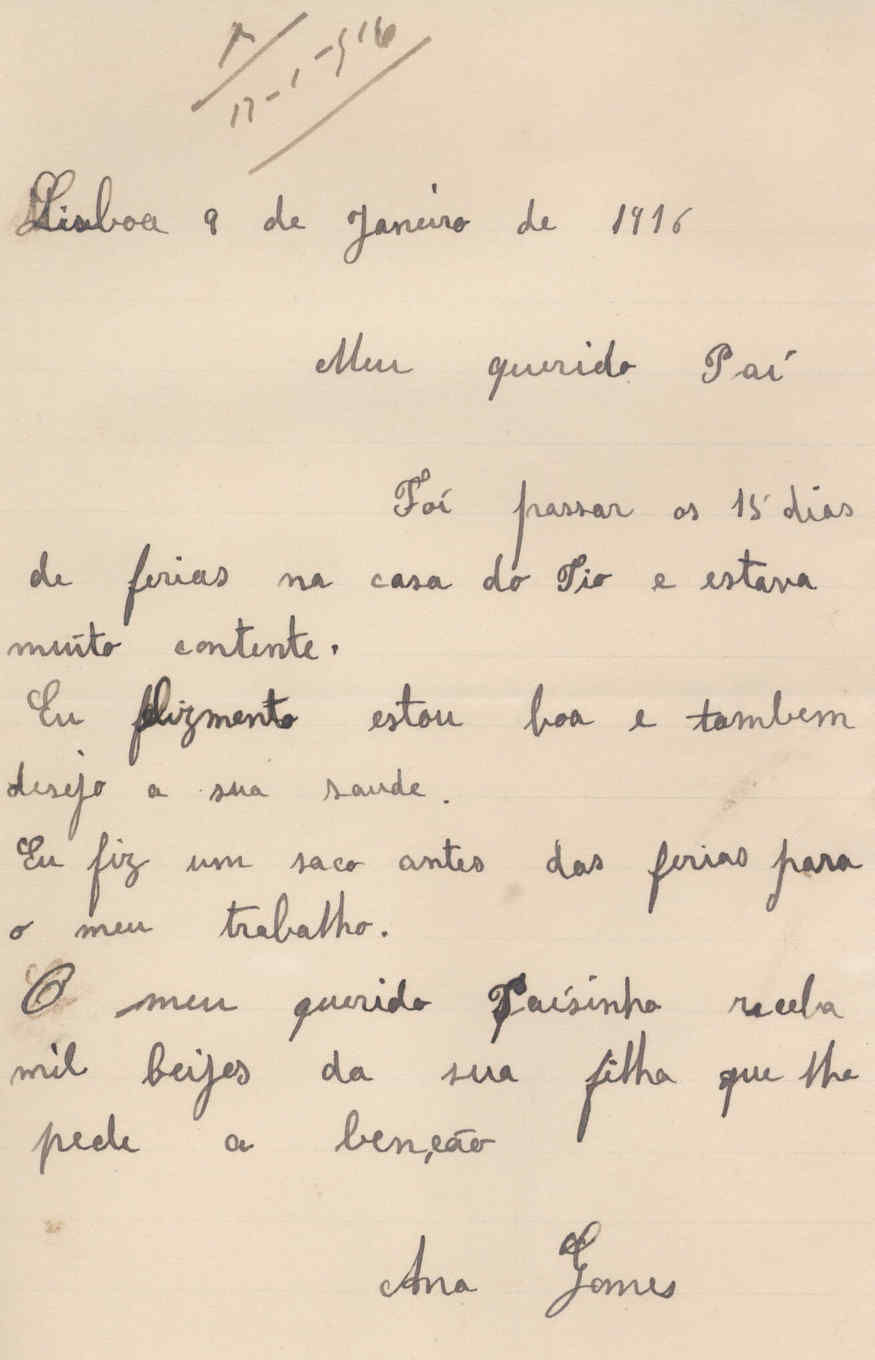 17-1-916
Lisboa 9 de Janeiro de 1916
Meu querido Pai
Foi passar os 15 dias
de ferias na casa do Tio e estava
muito contente.
Eu felizmento estou boa e tambem
desejo a sua saude.
Eu fiz um saco antes das ferias para
o meu trabalho.
O meu querido Paisinho receba
mil beijes da sua filha que lhe
pede a benção
Ana Gomes